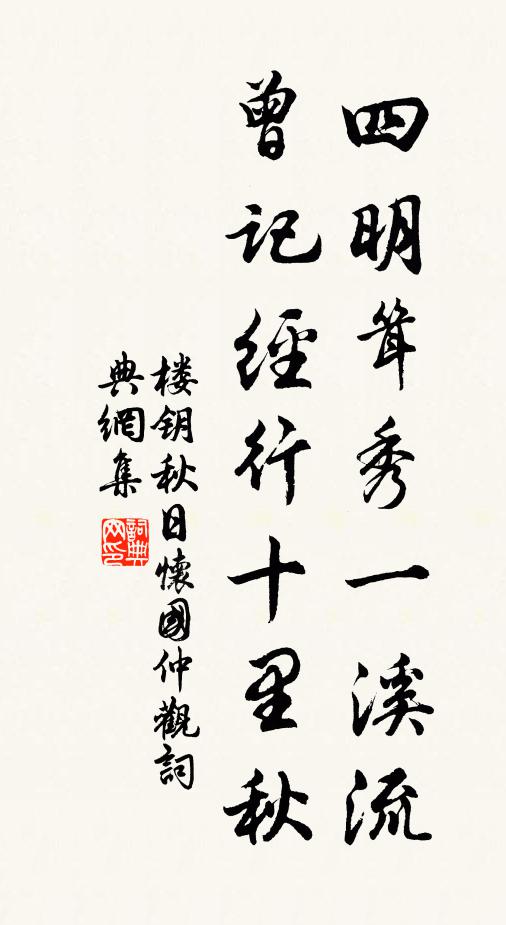 四明耸秀一溪流
曾記經行十里秋
楼钥秋日懷國仲觀詞
典網集
詞典
网印